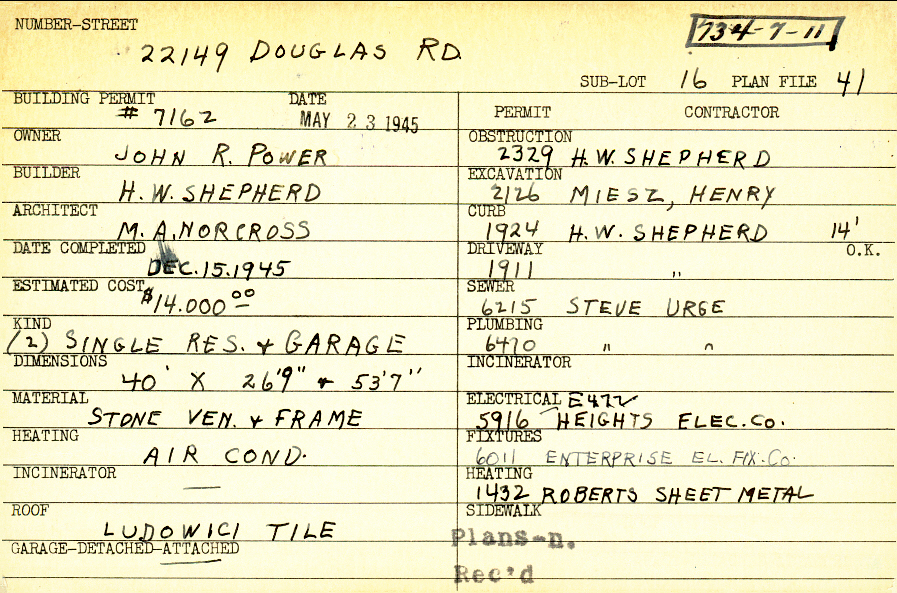 NUMBER-STREET
22149 DOUGLAS RD.
734-7-11
SUB-LOT 16 PLAN FILE 41
BUILDING PERMIT DATE
# 7162 MAY 23 1945
OWNER
JOHN R. POWER
BUILDER
H. W. SHEPHERD
ARCHITECT
M. A. NORCROSS
DATE COMPLETED
DEC. 15. 1945
ESTIMATED COST
$14.000 00
KIND
(2) SINGLE RES. & GARAGE
DIMENSIONS
40' X 26'9" & 53'7"
MATERIAL
STONE VEN. & FRAME
HEATING
AIR COND.
INCINERATOR
—
ROOF
LUDOWICI TILE
GARAGE-DETACHED-ATTACHED
PERMIT CONTRACTOR
OBSTRUCTION
2329 H. W. SHEPHERD
EXCAVATION
2126 MIESZ, HENRY
CURB
1924 H. W. SHEPHERD 14'
DRIVEWAY O.K.
1911 "
SEWER
6215 STEVE URGE
PLUMBING
6470 " "
INCINERATOR
ELECTRICAL E472
5916 HEIGHTS ELEC. CO.
FIXTURES
6011 ENTERPRISE EL. FIX. CO.
HEATING
1432 ROBERTS SHEET METAL
SIDEWALK
Plans-n.
Rec'd